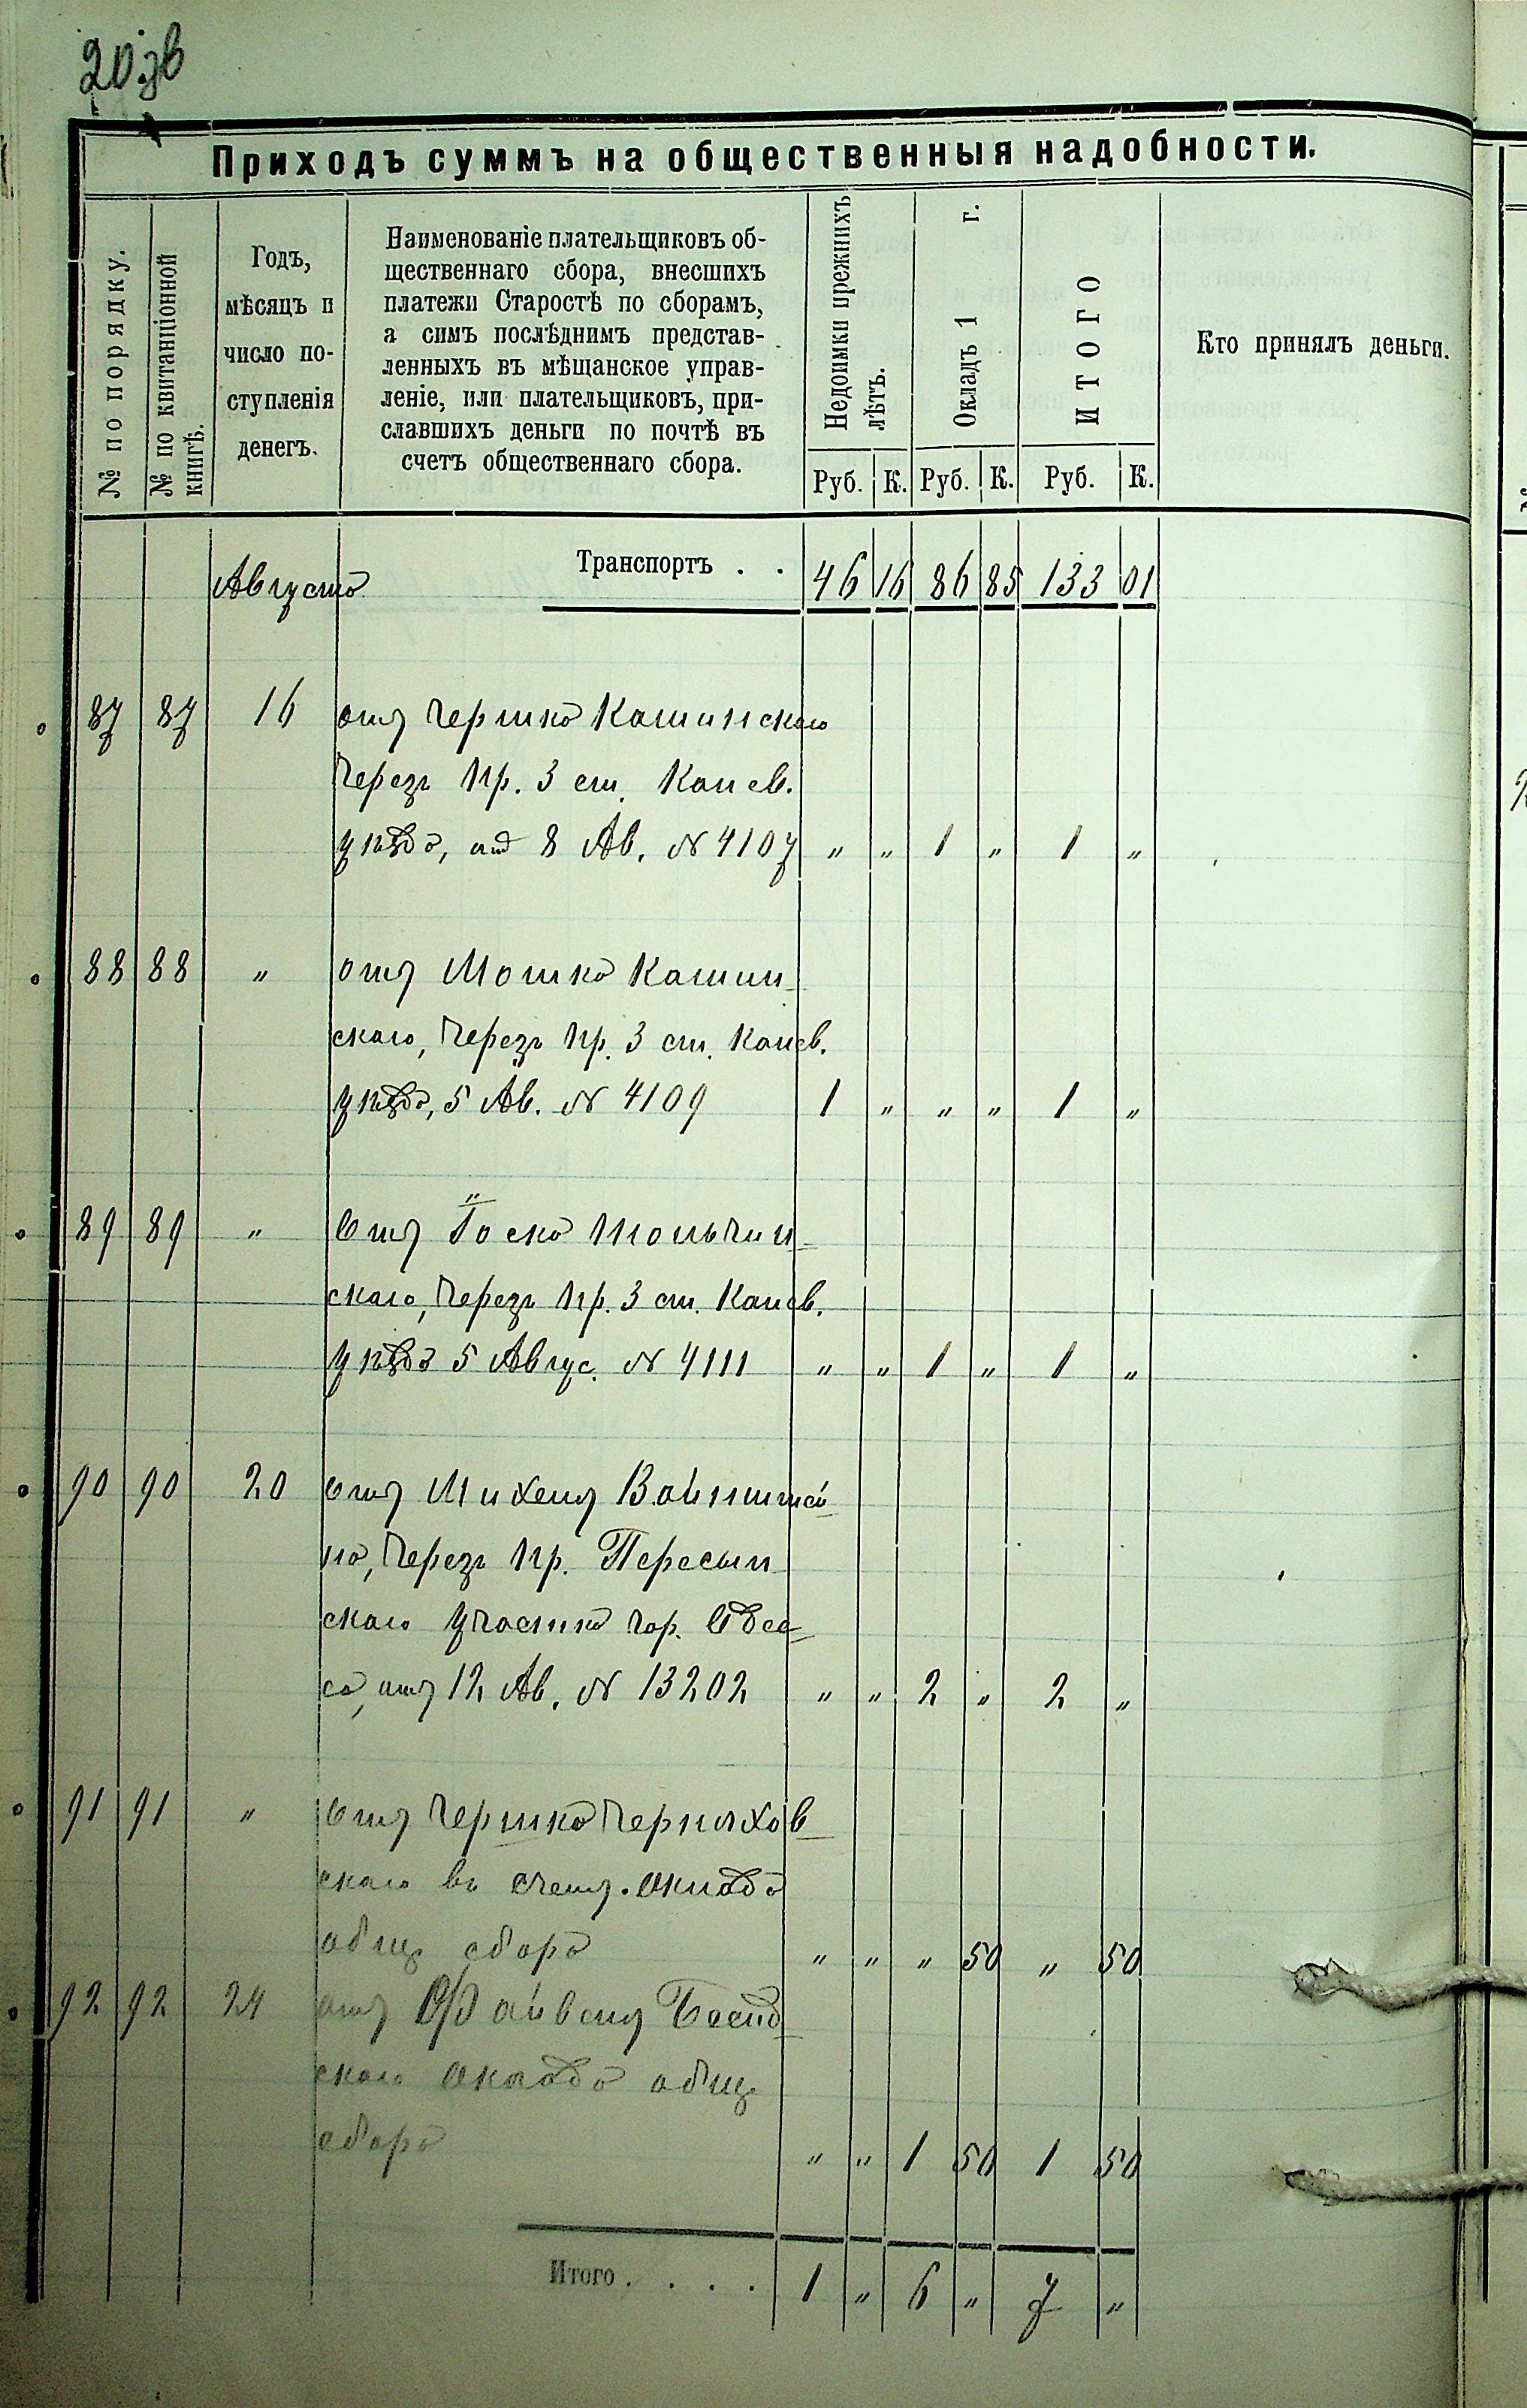 20 зв
Приходъ суммъ на общественныя надобности.
№ по порядку.
№ по квитанціонной
книгѣ.
Годъ,
мѣсяцъ и
число по-
ступленія
денегъ.
Наименованіе плательщиковъ об-
щественнаго сбора, внесшихъ
платежи Старостѣ по сборамъ,
а симъ послѣднимъ представ-
ленныхъ въ мѣщанское управ-
леніе, или плательщиковъ, при-
славшихъ деньги по почтѣ въ
счетъ общественнаго сбора.
Недоимки прежнихъ
лѣтъ.
Окладъ 1 г.
ИТОГО
Кто принялъ деньги.
Руб. К. Руб. К. Руб. К.
Августа Транспортъ . . 46 16 86 85 133 01
87 87 16 отъ Гершка Кашинскаго
Черезъ Пр. 3 ст. Канев.
уѣзда, отъ 8 Ав. № 4107 „ „ 1 „ 1 „
88 88 „ отъ Мошка Кашин-
скаго, Черезъ Пр. 3 ст. Канев.
уѣзда, 5 Ав. № 4109 1 „ „ „ 1 „
89 89 „ Отъ Госка Тольчин-
скаго, Черезъ Пр. 3 ст. Канев.
уѣзда 5 Авгус. № 4111 „ „ 1 „ 1 „
90 90 20 отъ Михеля Вайнштей-
на, Черезъ Пр. Пересып-
скаго Участка гор. Одес-
са, отъ 12 Ав. № 13202 „ „ 2 „ 2 „
91 91 „ Отъ Гершка Черняхов-
скаго въ счетъ оклада
общ. сбора „ „ „ 50 „ 50
92 92 24 отъ
скаго Оклада общ.
сбора „ „ 1 50 1 50
Итого . . . . 1 „ 6 „ 7 „